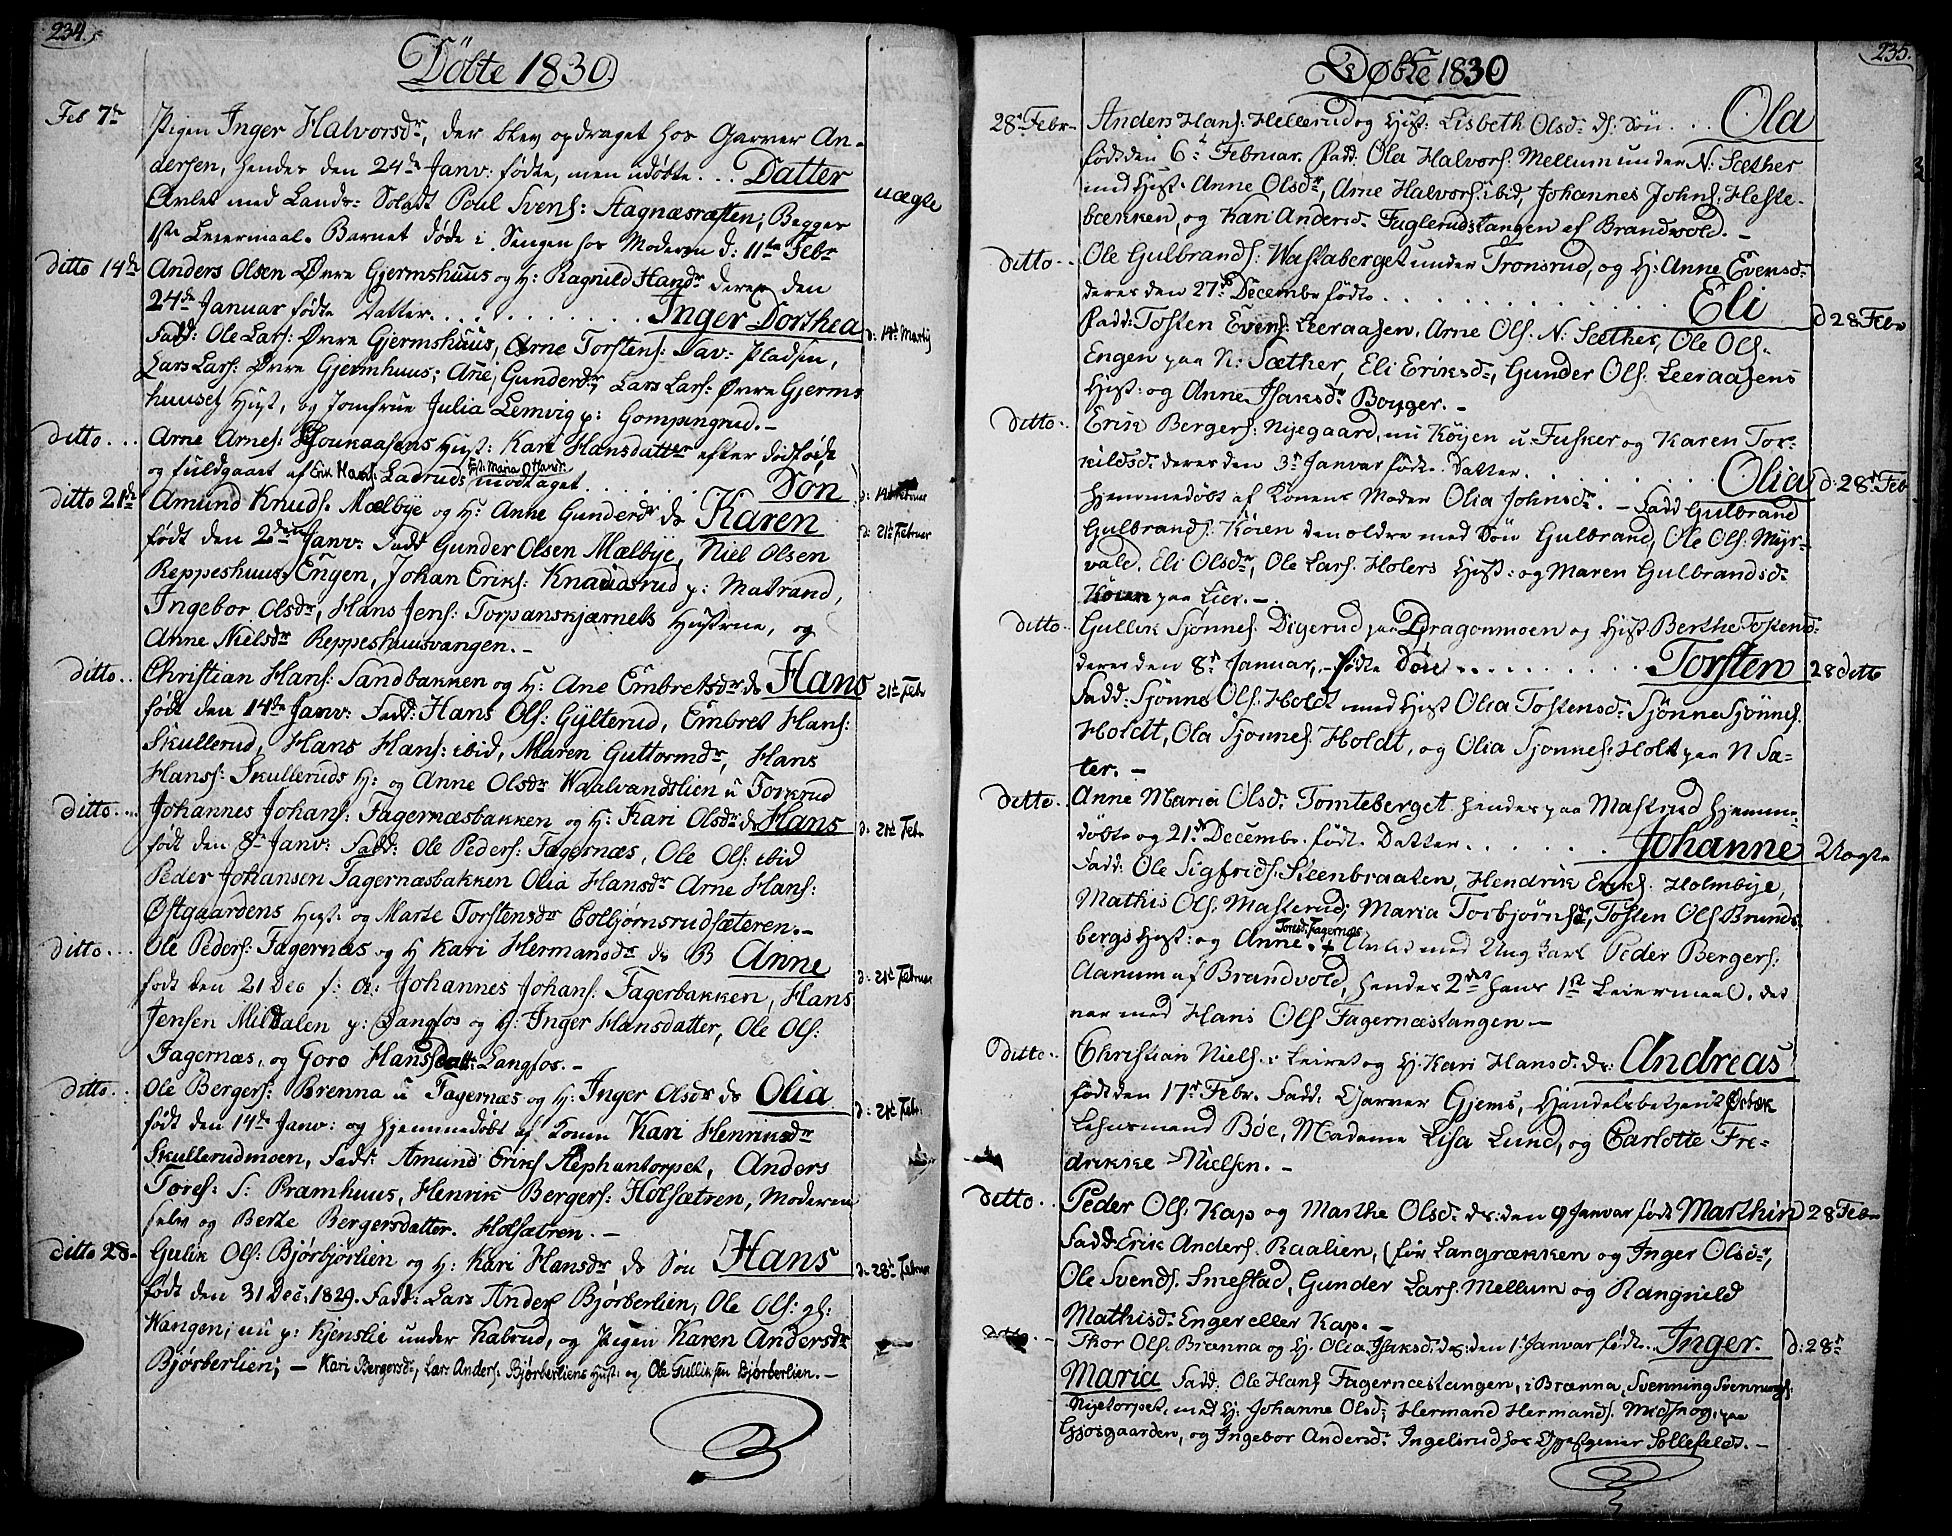 234.
Döbte 1830.
Feb 7de Pigen Inger Halvorsdr, der blev opdraget hos Garver An-
dersen, hendes den 24de Janv: fødte, men udøbte... Datter
uægte
Avlet med Lands: Soldt Poul Svens: Aagnæsræften; Begges
1ste Leiermaal. Barnet døde i Sengen hos Moderen d: 11te Febr
ditto 14de Anders Olsen Øvre Gjermshuus og H: Ragnild Handr deres den
24de Januar fødte Datter.......... Inger Dorthea
Fadd: Ole Lars: Øvre Gjermshuus, Arne Torstens: Sav: Pladsen, d: 14de Martij
Lars Lars: Øvre Gjermhuus; Ane, Gunderdr, Lars Lars: Øvre Gjerms
huuses Hust, og Jomfrue Julia Lemvig p: Gompingrud.-
ditto... Arne Arnes: Houkaasens Hust: Kari Hansdatter efter dødføde
og fuldgaaet af Erik Hans: Ladruds Hust: Maria Handr: modtaget....... Søn d: 14 Februar
ditto 21de Amund Knuds. Mælbye og H: Anne Gunderdr ds Karen
født den 2den Janv: Fadd Gunder Olsen Mælbye, Niel Olsen d: 21de Februar
Reppeshuus: Engen, Johan Eriks: Knadisrud p: Matrand,
Ingebor Olsdr, Hans Jens: Torpanskjærnets Hustrue, og
Anne Nielsdr Reppeshuusvangen.-
ditto.. Christian Hans: Sandbakken og H: Ane Embretsdr ds Hans 21de Febr
født den 14de Janv: Fadd: Hans Ols: Gylterud, Embret Hans:
Skullerud, Hans Hans: ibid, Maren Guttormdr, Hans
Hanss: Skulleruds H: og Anne Olsdr Waalvandslien u Torkrud
ditto... Johannes Johans: Fagernæsbakken og H: Kari Olsdr ds Hans d: 21de Febr
født den 8de Janv: Fadd: Ole Peders: Fagernæs, Ole Ols: ibid
Peder Johansen Fagernæsbakken Olia Hansdr Arne Hans:
Østgaardens Hust: og Marte Torstensdr Colbjørnsrudsæteren.-
ditto... Ole Peders: Fagernæs og H Kari Hermansdr ds B Anne
født den 21 Dec f: A: Johannes Johans: Fagerbakken, Hans d: 21de Februar
Jensen Mildalen p: Langfos og H: Inger Hansdatter, Ole Ols:
Fagernæs, og Goro Hans Datt: Langfos.-
ditto.. Ole Bergers: Brenna u Fagernæs og H: Inger Olsdr ds Olia d: 21de Febr.
født den 14de Janv: og hjemmedøbt af Konen Kari Henriksdr
Skullerudmoen, Fadd: Amund Eriks Aephantorpet, Anders
Tores: S: Pramhuus, Henrik Bergers: Holsætren, Moderen
selv og Berte Bergersdatter. Holsætren.-
ditto 28- Gulik Ols: Bjørbjørlien og H: Kari Hansdr ds Søn Hans d: 28de Februar
født den 31 Dec: 1829. Fadd: Lars Anders Bjørberlien, Ole Ols: gl:
Wangen; nu p: Kjenslie under Kabrud, og Pigen Karen Andersdr
Bjørberlien; - Kari Bergersdr, Lars Anders: Bjørberliens Hust: og Ole Gulliksen Bjørberlien.-
235.
Døbte 1830
28de Febr- Anders Hans: Hellerud og Hust: Lisbeth Olsdr ds: Søn... Ola
født den 6te Februar. Fadd: Ola Halvors: Mellum under N: Sæther
med Hust: Anne Olsdr, Arne Halvors: ibid, Johannes Johns: Hesle-
bækken, og Kari Andersdr Fuglerudstangen af Brandvold.-
ditto.. Ole Gulbrands: Wastaberget under Tronsrud, og H: Anne Evensdr
deres den 27de Decembr fødte............. Eli
Fadd: Tosten Evens: Leeraasen, Arne Ols: N: Sæther, Ole Ols. d 28 Febr
Engen paa N: Sæther, Eli Eriksdr, Gunder Ols: Leeraasens
Hust: og Anne Isaksdr Bogger.-
ditto.. Erik Bergers: Nyegaard, nu Køyen u: Fusker og Karen Tor-
kildsdr deres den 3de Januar fødte Datter.......... Olia d: 28de Feb
Hjemmedøbt af Konens Moder Olia Johnsdr.- Fadd Gulbrand
Gulbrands: Køien den eldre med Søn Gulbrand, Ole Ols: Myr-
vald, Eli Olsdr, Ole Lars: Holers Hust: og Maren Gulbrandsdr
Køien paa Lier.-.
ditto. Gullik Sjønnes: Digerud paa Dragonmoen og Hust Berthe Tostensdr:
deres den 8de Januar,- fødte Søn.......... Torsten 28 ditto
Fadd: Sjønne Ols: Holdt med Hust Olia Tostensdr Sjønne Sjønnes:
Holdt, Ola Sjønnes: Holdt, og Olia Sjønnes: Holt paa N Sæ-
ter.-
ditto. Anne Maria Olsdr Tomteberget hendes paa Mastrud hjemme-
døbte og 21de Decembr. fødte Datter....... Johanne Uægte
Fadd: Ole Sigfrids: Steenbraaten, Hendrik Eriks: Holmbye,
Mathis Ols: Masterud; Maria Torbjørnsdr, Tosten Ols Brunds-
bergs Hust: og Anne Toresd: Fagernæs Avlet med Ung Karl Peder Bergers:
Aanum af Brandvold, hendes 2det hans 1ste Leiermaal. det
var med Hans Ols Fagernæstangen-
Ditto.. Christian Niels: Leiret og H. Kari Hansdr ds: Andreas
født den 17de Febr. Fadd. Garver Gjems, Handelsbetjent Ørbæk
Lehnsmand Bøe, Madame Lisa Lund, og Carlotte Fre-
drikke Nielsen.-
ditto. Peder Ols. Kap og Marthe Olsdr ds: den 9 Januar født Marthin d 28 Febr
Fadd: Erik Anders. Raalien, (før Langrækken og Inger Olsdr,
Ole Svends. Smestad, Gunder Lars: Mellum og Rangnild
Mathisdr Enger eller Kap.-
ditto.- Thor Ols. Brænna og H. Olia Isaksdr ds: den 1ste Januar fødte. Inger. d: 28de
Maria Fadd: Ole Hans Fagernæstangen, i Brænna, Svenning Svennings:
Nyetorpet, med H: Johanne Olsdr, Hermand Hermands. Midskog, paa
Gjosgaarden, og Ingebor Andersdr Ingelsrud hos Opsegner Sollefeldt.-